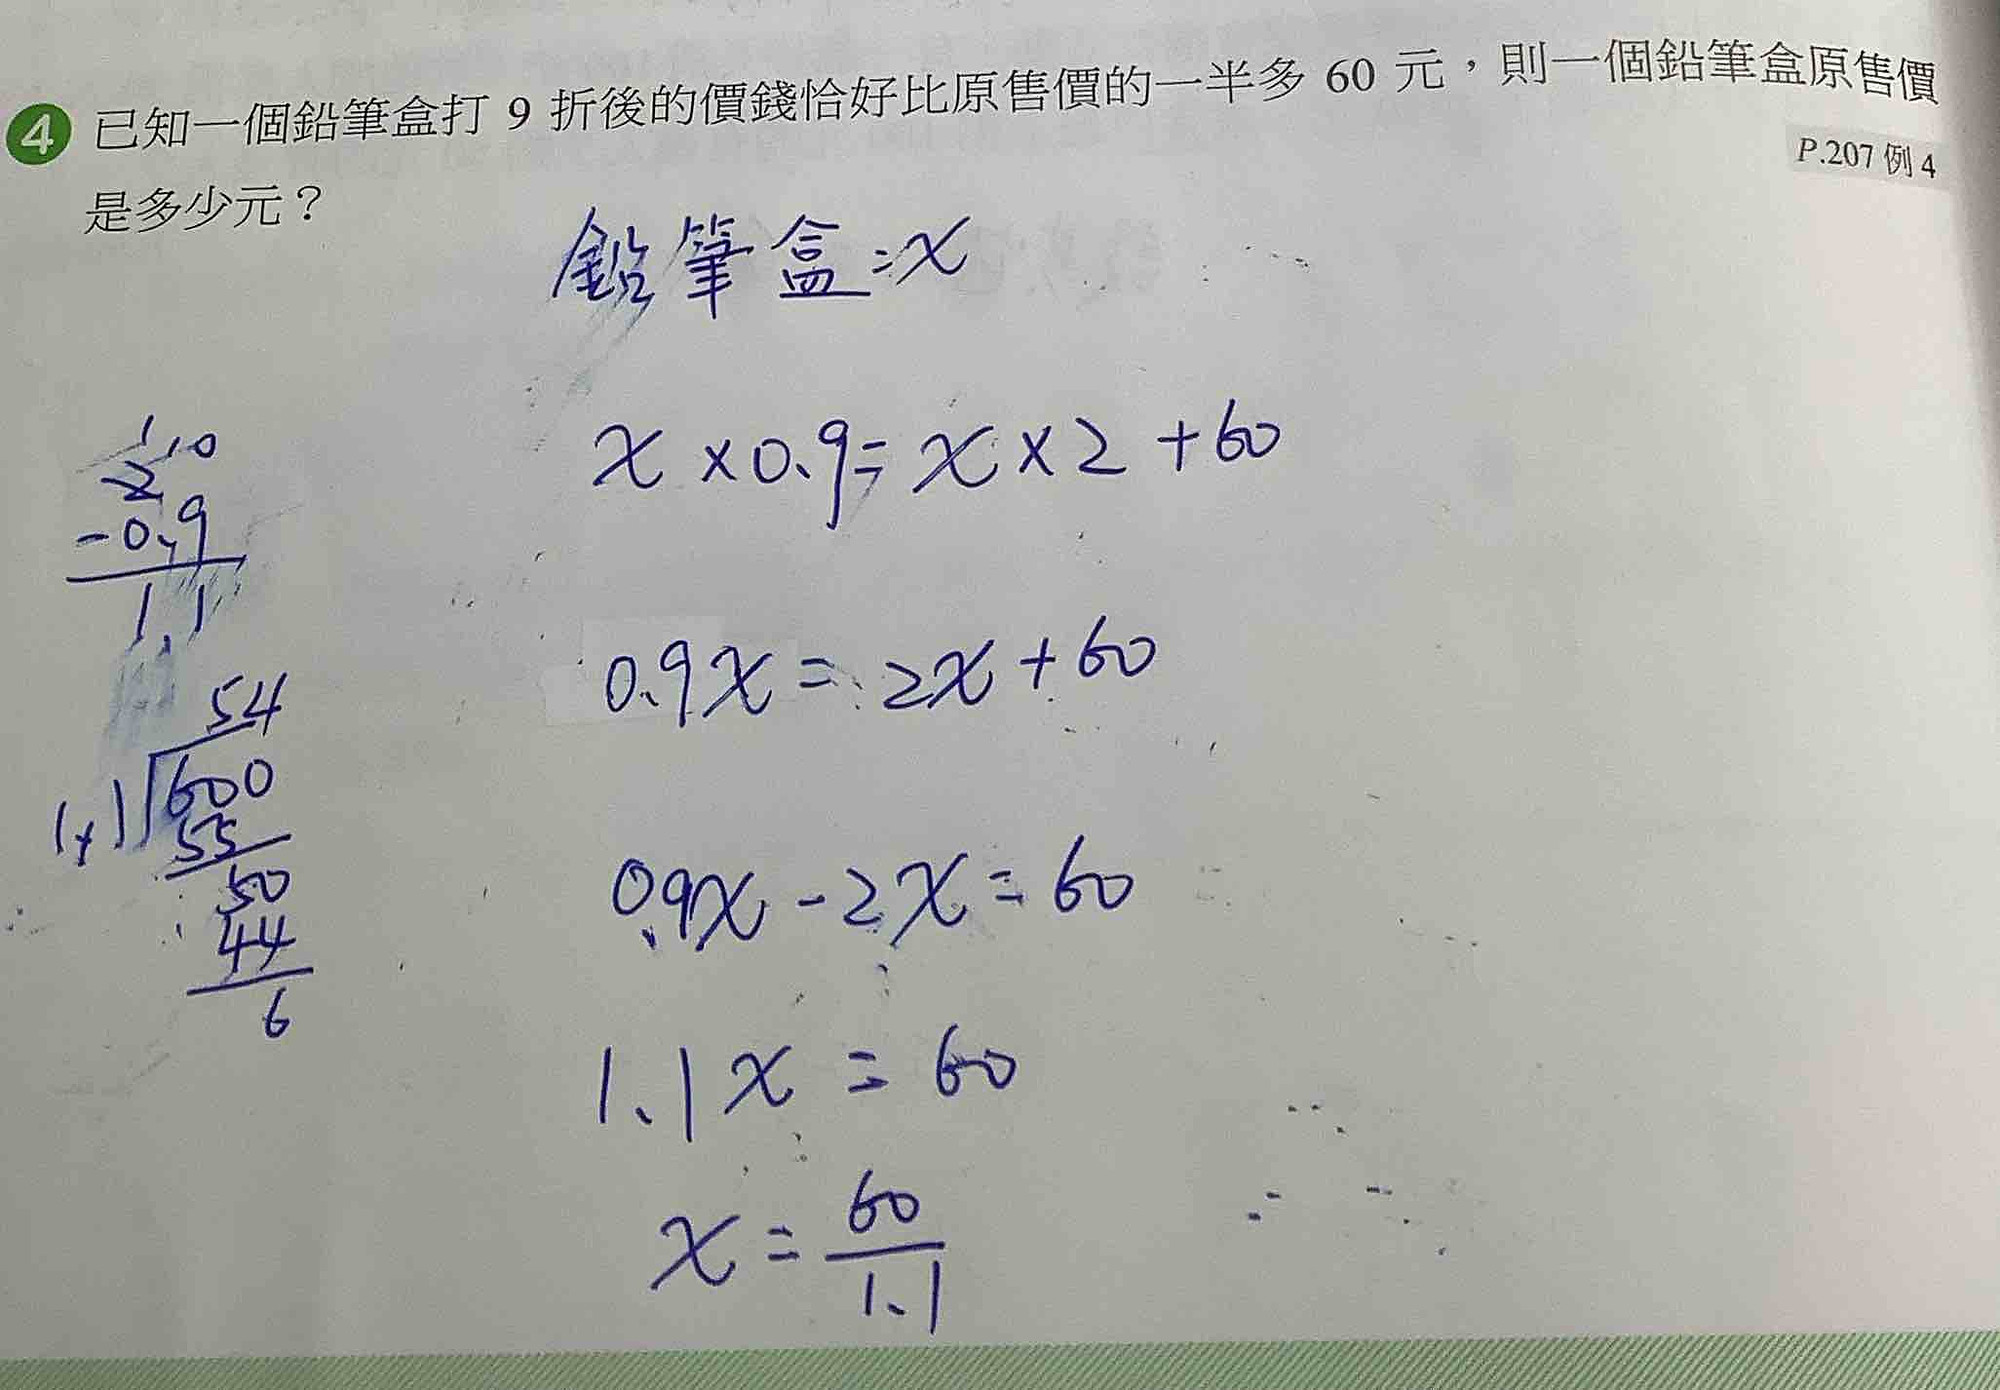 4 已知一個鉛筆盒打 9 折後的價錢恰好比原售價的一半多 60 元，則一個鉛筆盒原售價
是多少元？
P.207 例 4
鉛筆盒=x
x×0.9=x×2+60
0.9x=2x+60
0.9x-2x=60
1.1x=60
x=60/1.1
1 10
2
-0.9
1.1
54
1.1)600
55
50
44
6